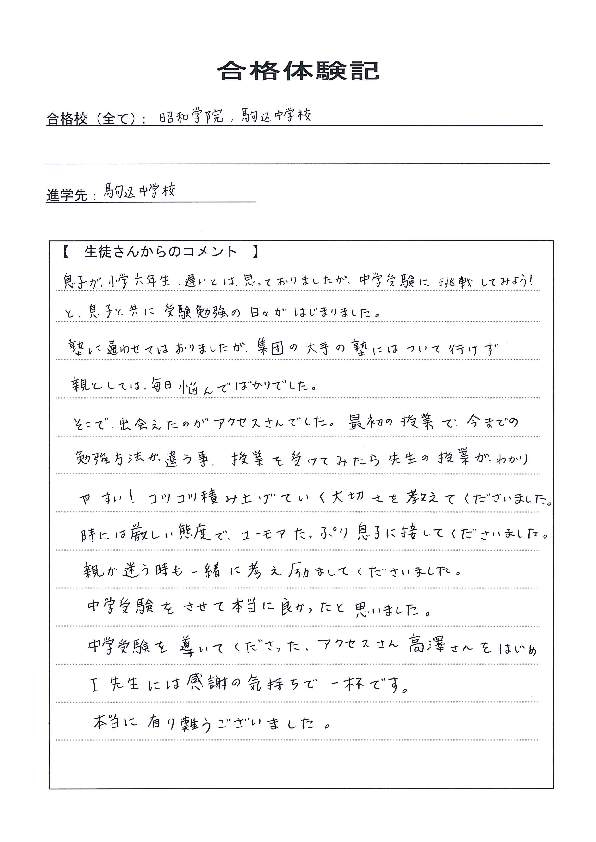 合格体験記
合格校（全て）：昭和学院、駒込中学校
進学先：駒込中学校
【 生徒さんからのコメント 】
息子が、小学六年生、遅いとは、思っておりましたが、中学受験に挑戦してみよう！
と、息子と共に受験勉強の日々がはじまりました。
塾に通わせてはおりましたが、集団の大手の塾にはついて行けず
親としては、毎日悩んでばかりでした。
そこで、出会えたのがアクセスさんでした。最初の授業で、今までの
勉強方法が、違う事、授業を受けてみたら先生の授業が、わかり
やすい！コツコツ積み上げていく大切さを教えてくださいました。
時には厳しい態度で、ユーモアたっぷり息子に接してくださいました。
親が迷う時も一緒に考え励ましてくださいました。
中学受験をさせて本当に良かったと思いました。
中学受験を導いてくださった、アクセスさん高澤さんをはじめ
I先生には感謝の気持ちで一杯です。
本当に有り難うございました。